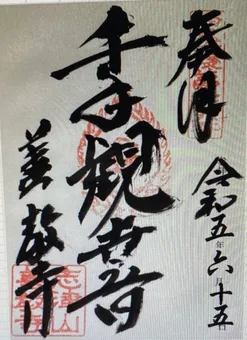 奉拝
令和五年六月十五日
千手観世音
善教寺